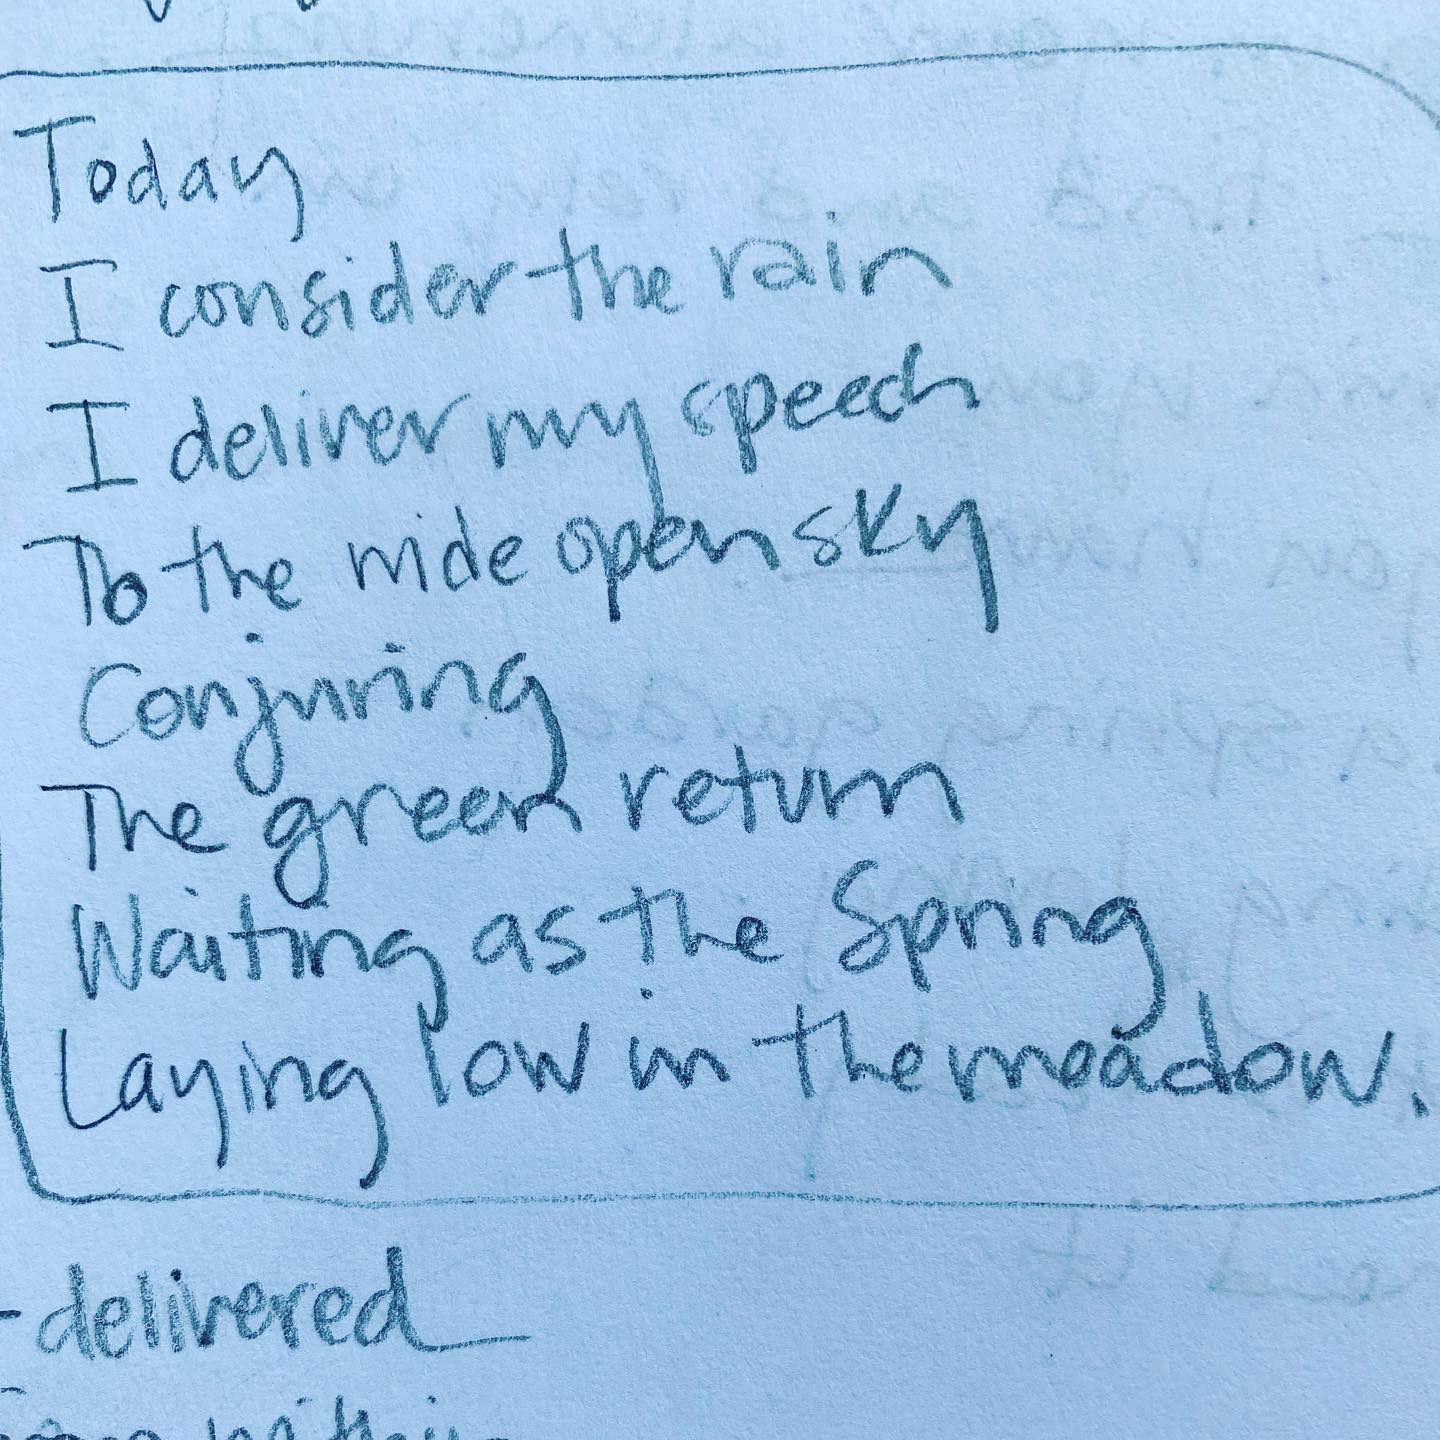 Today
I consider the rain
I deliver my speech
To the wide open sky
Conjuring
The green return
Waiting as the Spring
Laying low in the meadow.
- delivered